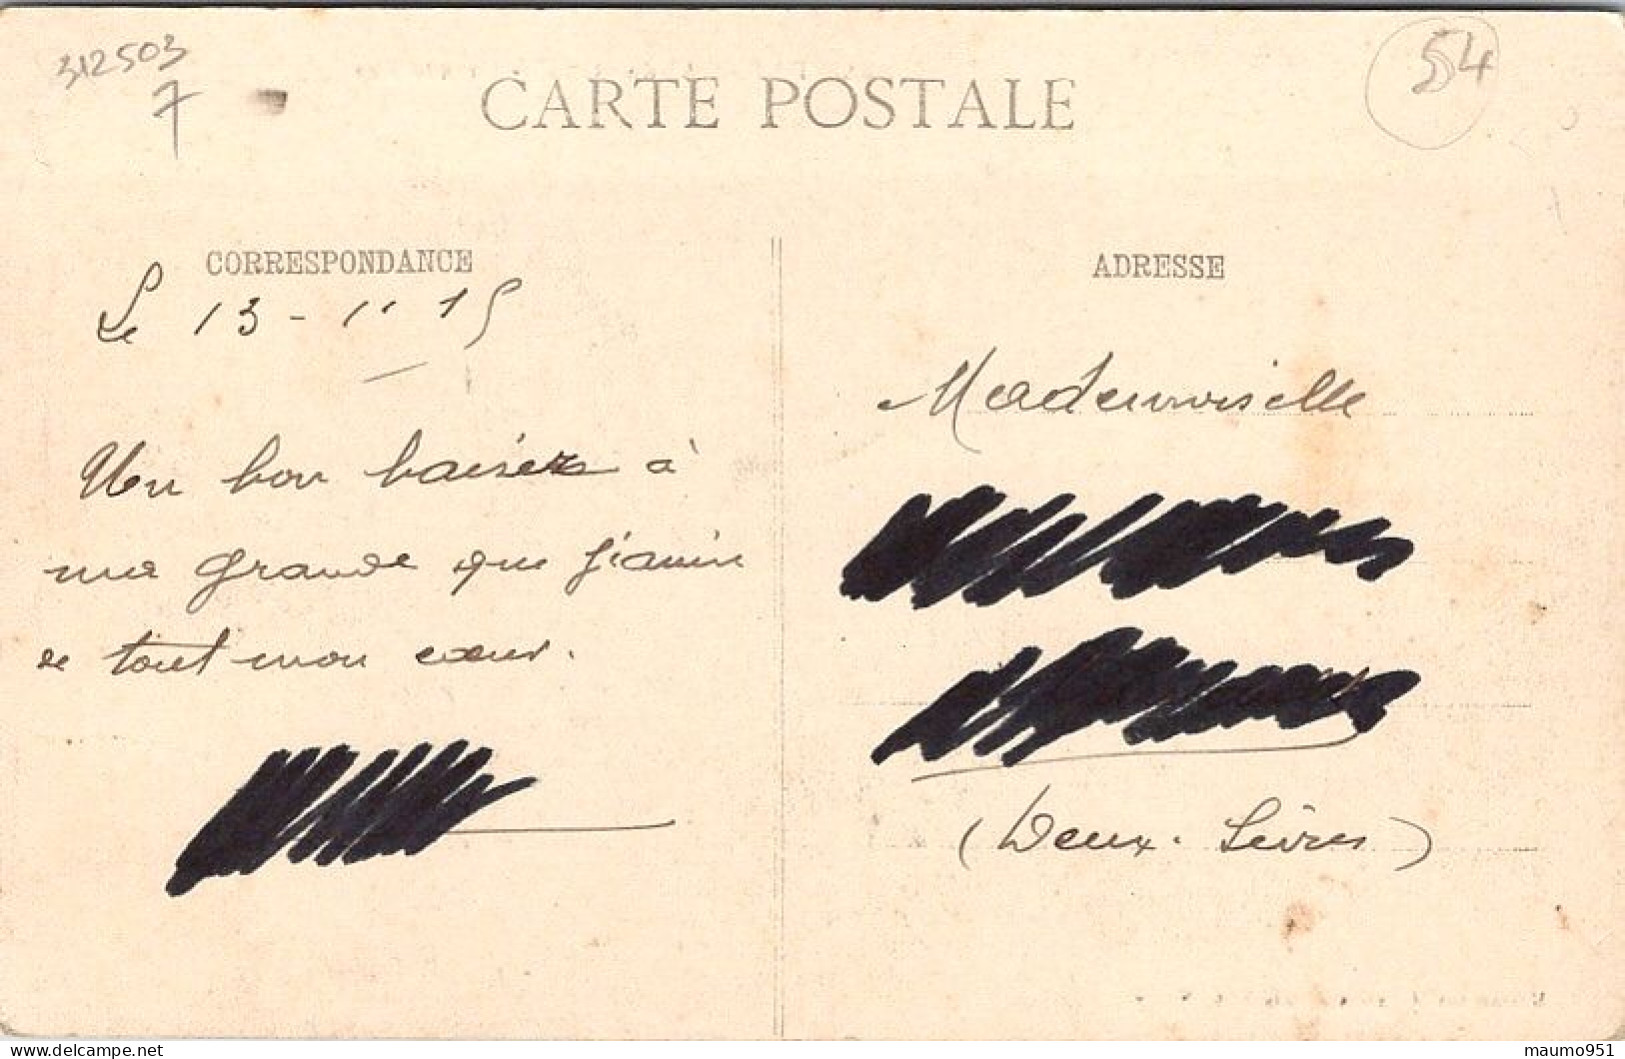 312503
7
54
CARTE POSTALE
CORRESPONDANCE
Le 13-11 15
Un bon baiser à
ma grande que j'aime
de tout mon cœur.
ADRESSE
Mademoiselle
(Deux-Sèvres)
maumo951